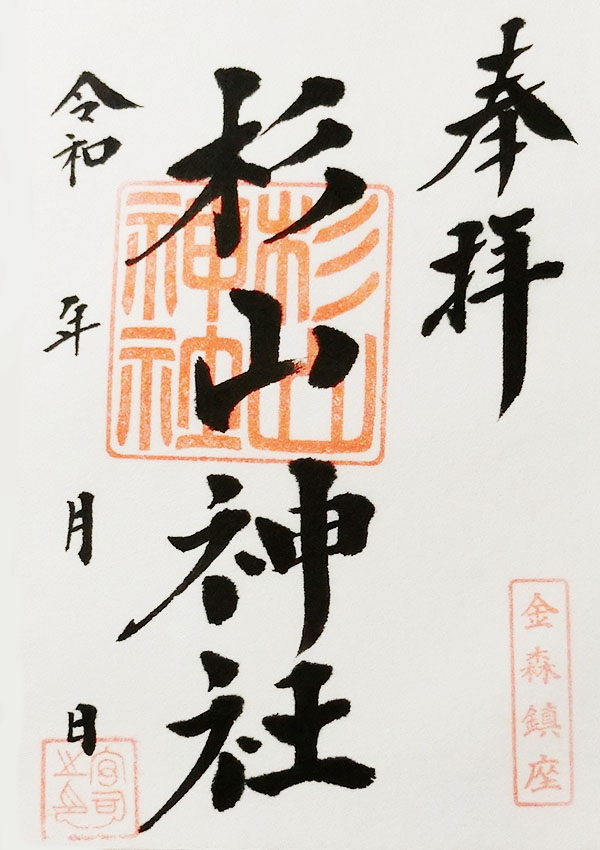 奉拝
金森鎮座
杉山神社
杉山
神社
令和 年 月 日
宮司
之印